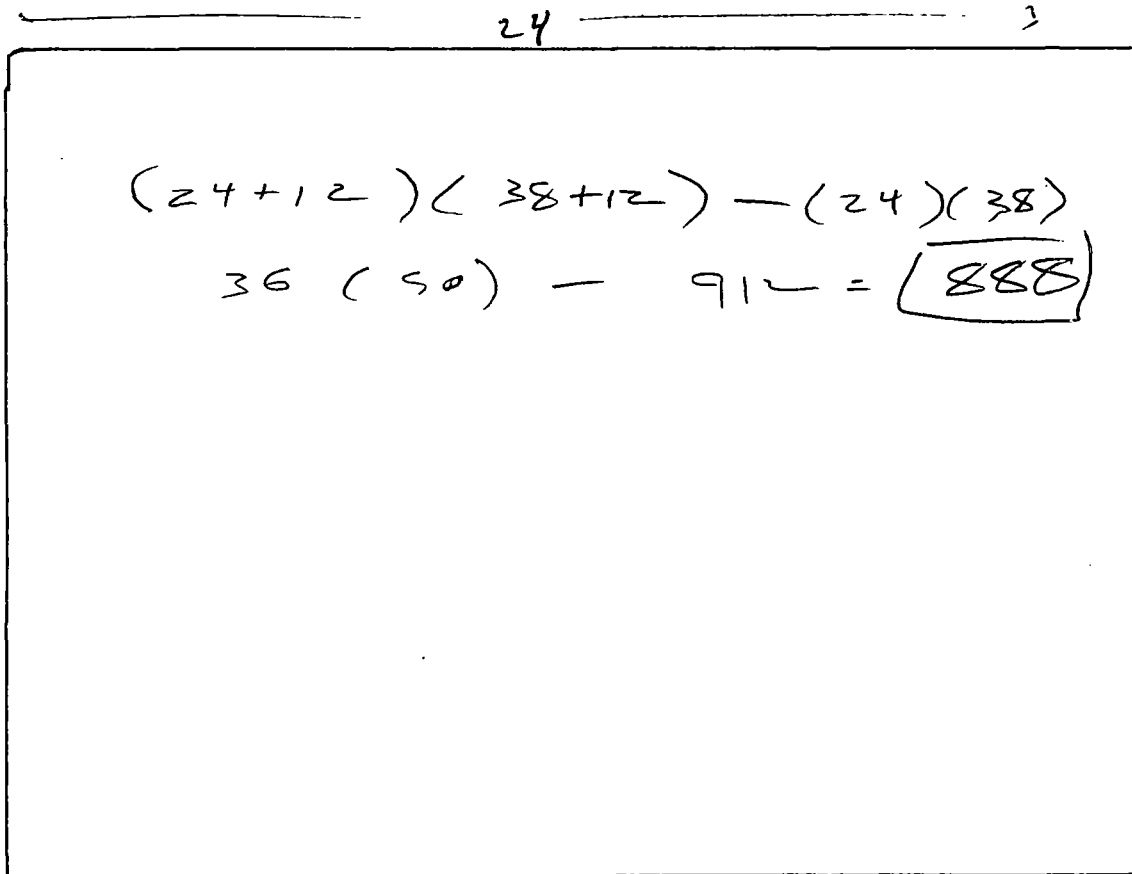 24 3
(24+12)(38+12) — (24)(38)
36 (50) — 912 = 888